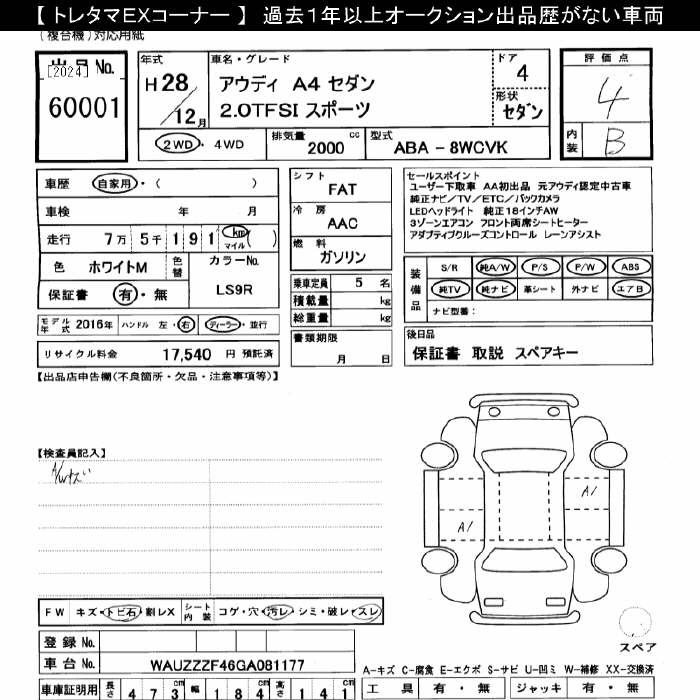 【 トレタマEXコーナー 】 過去1年以上オークション出品歴がない車両
(複合機)対応用紙
出品 No.
[2024]
60001
年式
H 28
12月
車名・グレード
アウディ A4 セダン
2.0TFSI スポーツ
ドア
4
形状
セダン
2WD・4WD
排気量
2000 cc
型式
ABA - 8WCVK
評価点
4
内装
B
車歴 自家用・( )
車検 年 月
走行 7万 5千 1 9 1 km マイル ( )
色 ホワイトM
色替
カラーNo.
LS9R
保証書 有・無
シフト
FAT
冷房
AAC
燃料
ガソリン
乗車定員 5 名
積載量 kg
総重量 kg
書類期限
月 日
セールスポイント
ユーザー下取車 AA初出品 元アウディ認定中古車
純正ナビ/TV/ETC/バックカメラ
LEDヘッドライト 純正18インチAW
3ゾーンエアコン フロント両席シートヒーター
アダプティブクルーズコントロール レーンアシスト
装備品
S/R 純A/W P/S P/W ABS
純TV 純ナビ 革シート 外ナビ エアB
ナビ型番:
モデル年式 2016年 ハンドル 左・右 ディーラー・並行
リサイクル料金 17,540 円 預託済
後日品
保証書 取説 スペアキー
【出品店申告欄(不良箇所・欠品・注意事項等)】
【検査員記入】
A/Wキズ
A1
A1
FW キズ・トビ石・割レX
シート内装 コゲ・穴・汚レ・シミ・破レ・スレ
スペア
登録 No.
車台 No. WAUZZZF46GA081177
A-キズ C-腐食 E-エクボ S-サビ U-凹ミ W-補修 XX-交換済
車庫証明用 長さ 4 7 3 cm 幅 1 8 4 cm 高さ 1 4 1 cm
工具 有・無 ジャッキ 有・無